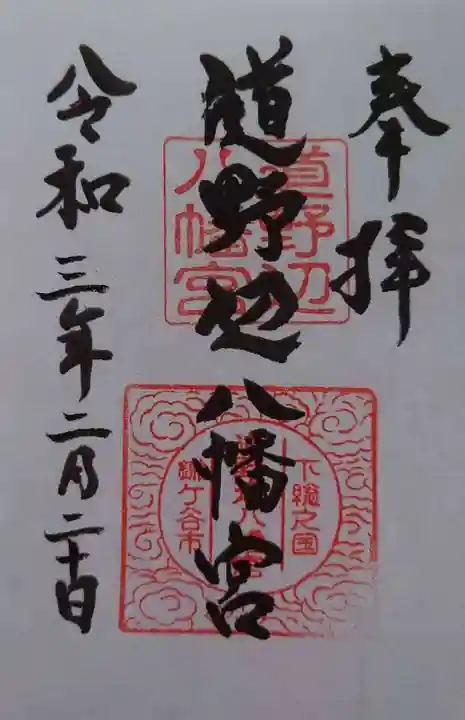 奉拝
道野辺八幡宮
令和三年二月二十日
道野辺
八幡宮
下総之国
鎌ケ谷市